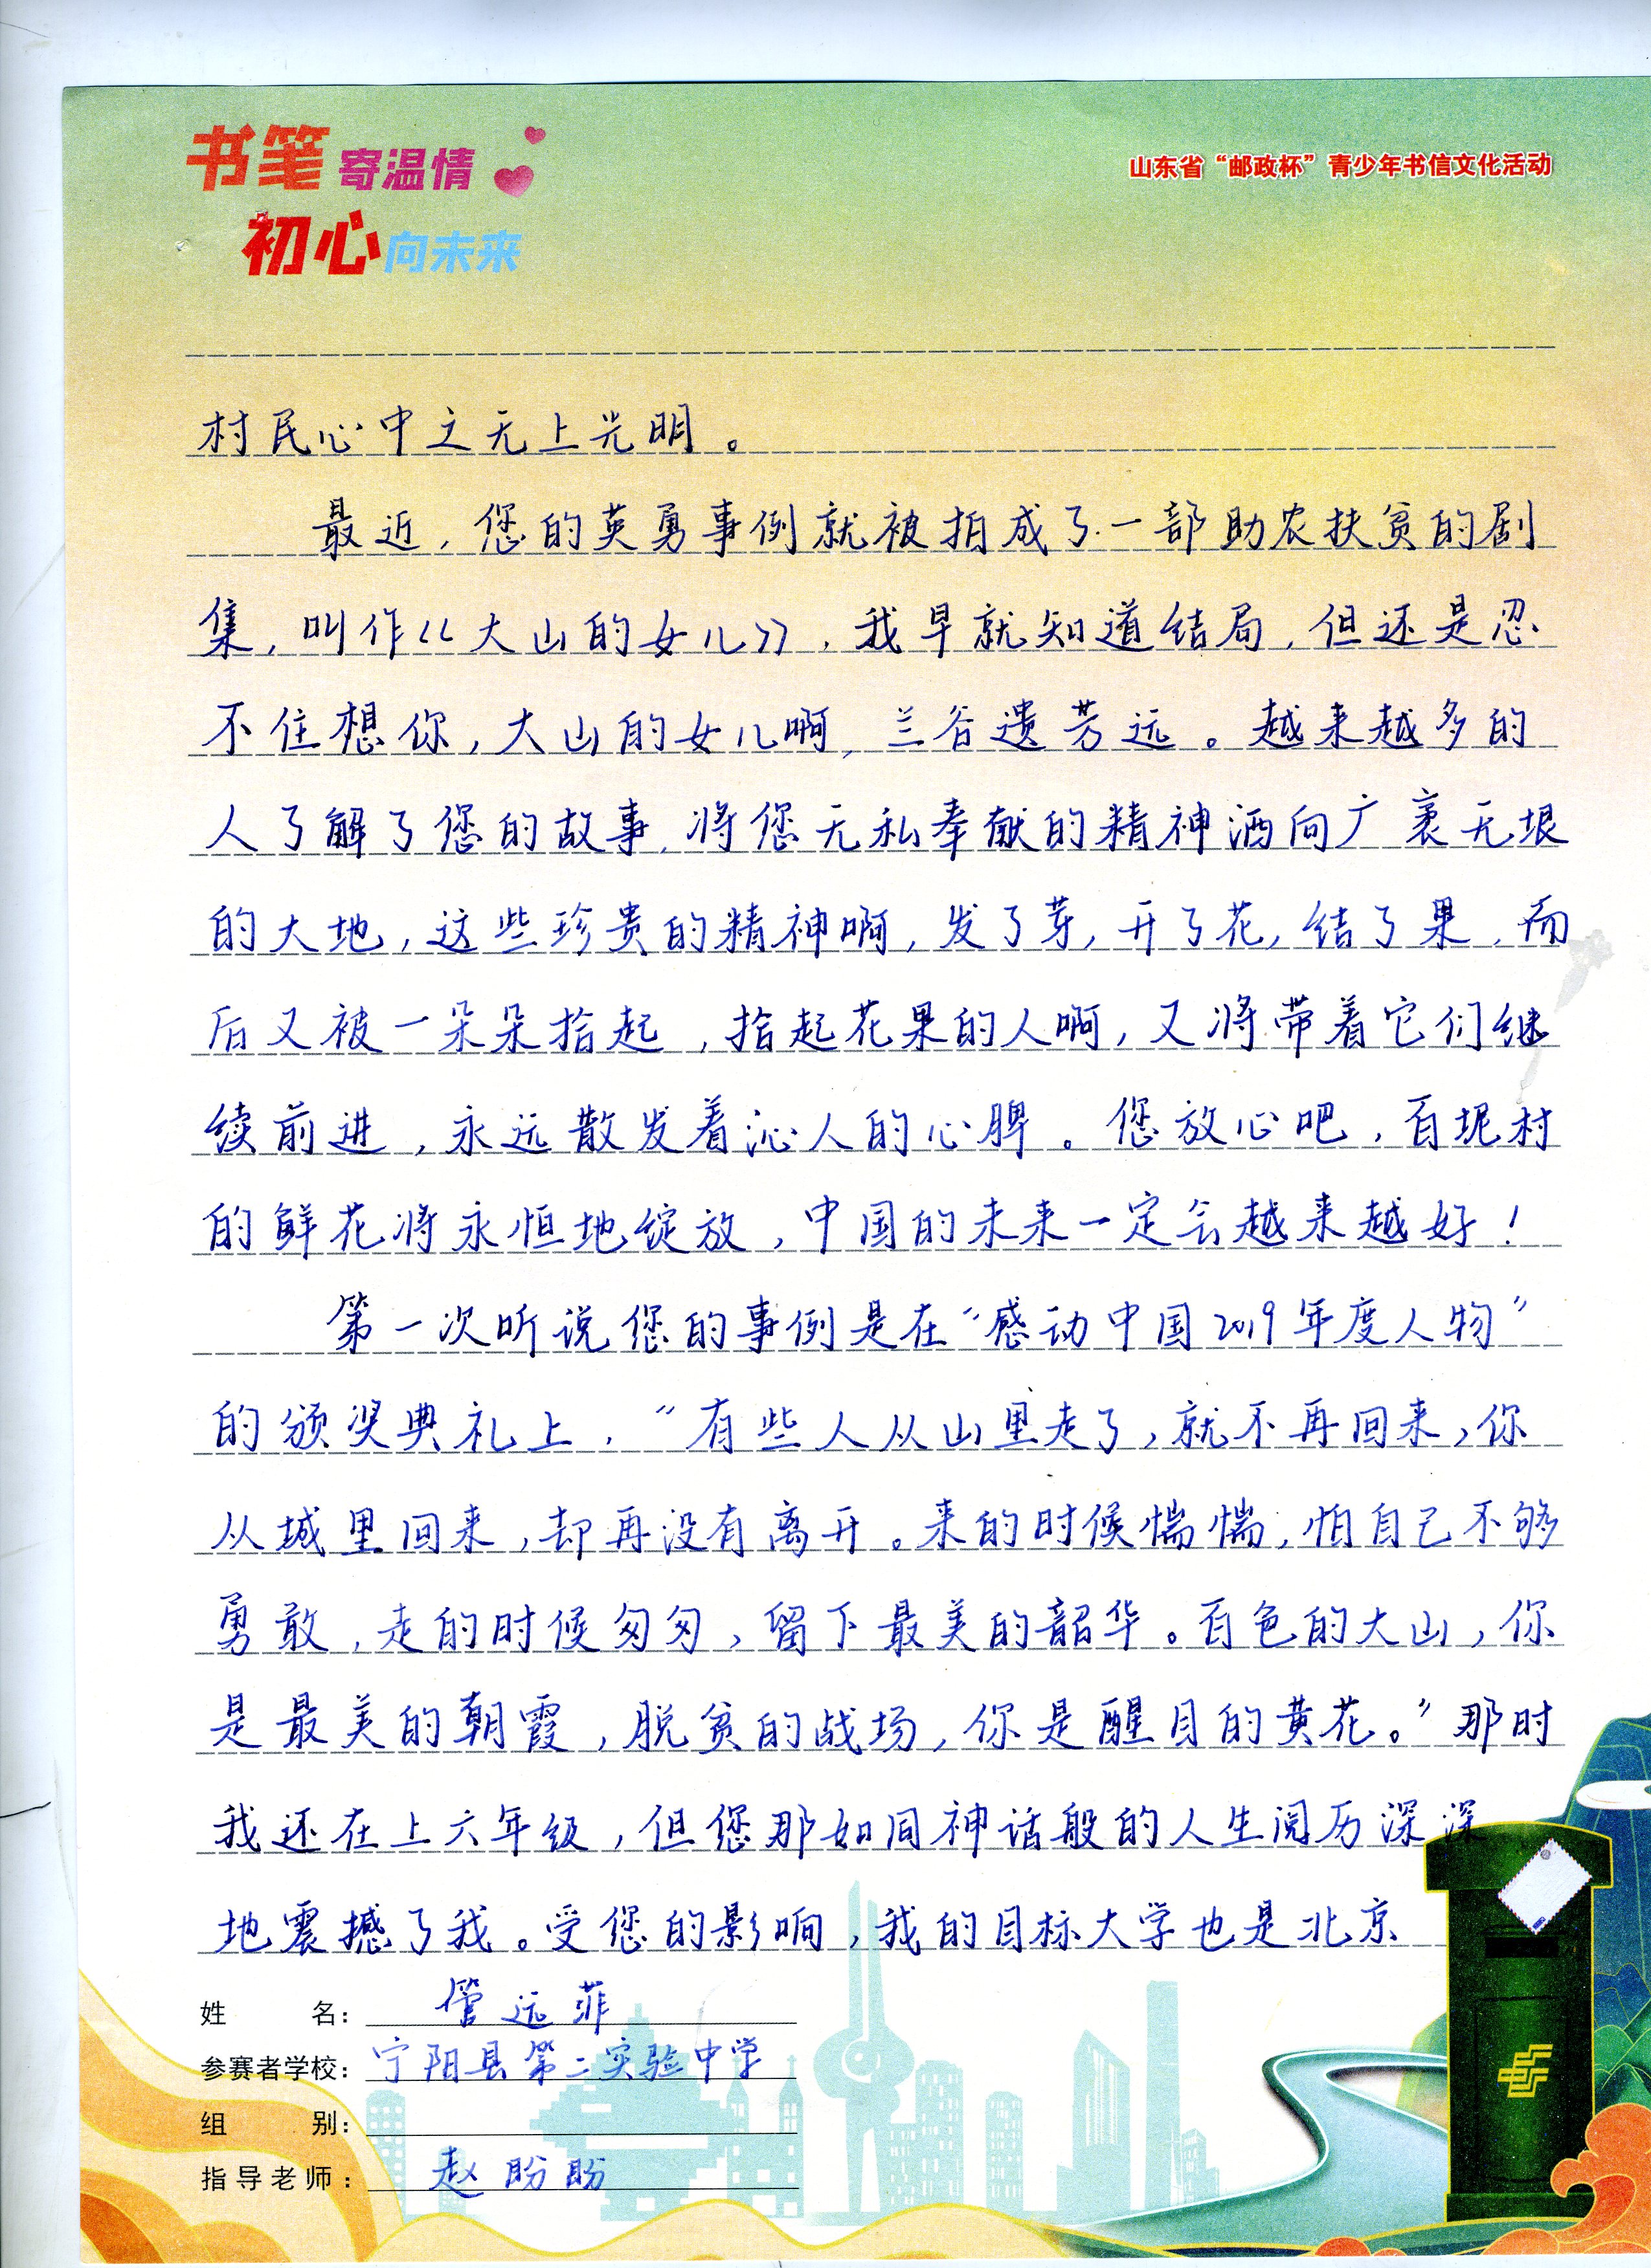 书笔寄温情
初心向未来
山东省“邮政杯”青少年书信文化活动
村民心中之无上光明。
最近，您的英勇事例就被拍成了一部助农扶贫的剧
集，叫作《大山的女儿》，我早就知道结局，但还是忍
不住想你，大山的女儿啊，兰谷遗芳远。越来越多的
人了解了您的故事，将您无私奉献的精神洒向广袤无垠
的大地，这些珍贵的精神啊，发了芽，开了花，结了果，而
后又被一朵朵拾起，拾起花果的人啊，又将带着它们继
续前进，永远散发着沁人的心脾。您放心吧，百坭村
的鲜花将永恒地绽放，中国的未来一定会越来越好！
第一次听说您的事例是在“感动中国2019年度人物”
的颁奖典礼上，“有些人从山里走了，就不再回来，你
从城里回来，却再没有离开。来的时候惴惴，怕自己不够
勇敢，走的时候匆匆，留下最美的韶华。百色的大山，你
是最美的朝霞，脱贫的战场，你是醒目的黄花。”那时
我还在上六年级，但您那如同神话般的人生阅历深深
地震撼了我。受您的影响，我的目标大学也是北京
姓名：管远菲
参赛者学校：宁阳县第二实验中学
组别：
指导老师：赵盼盼